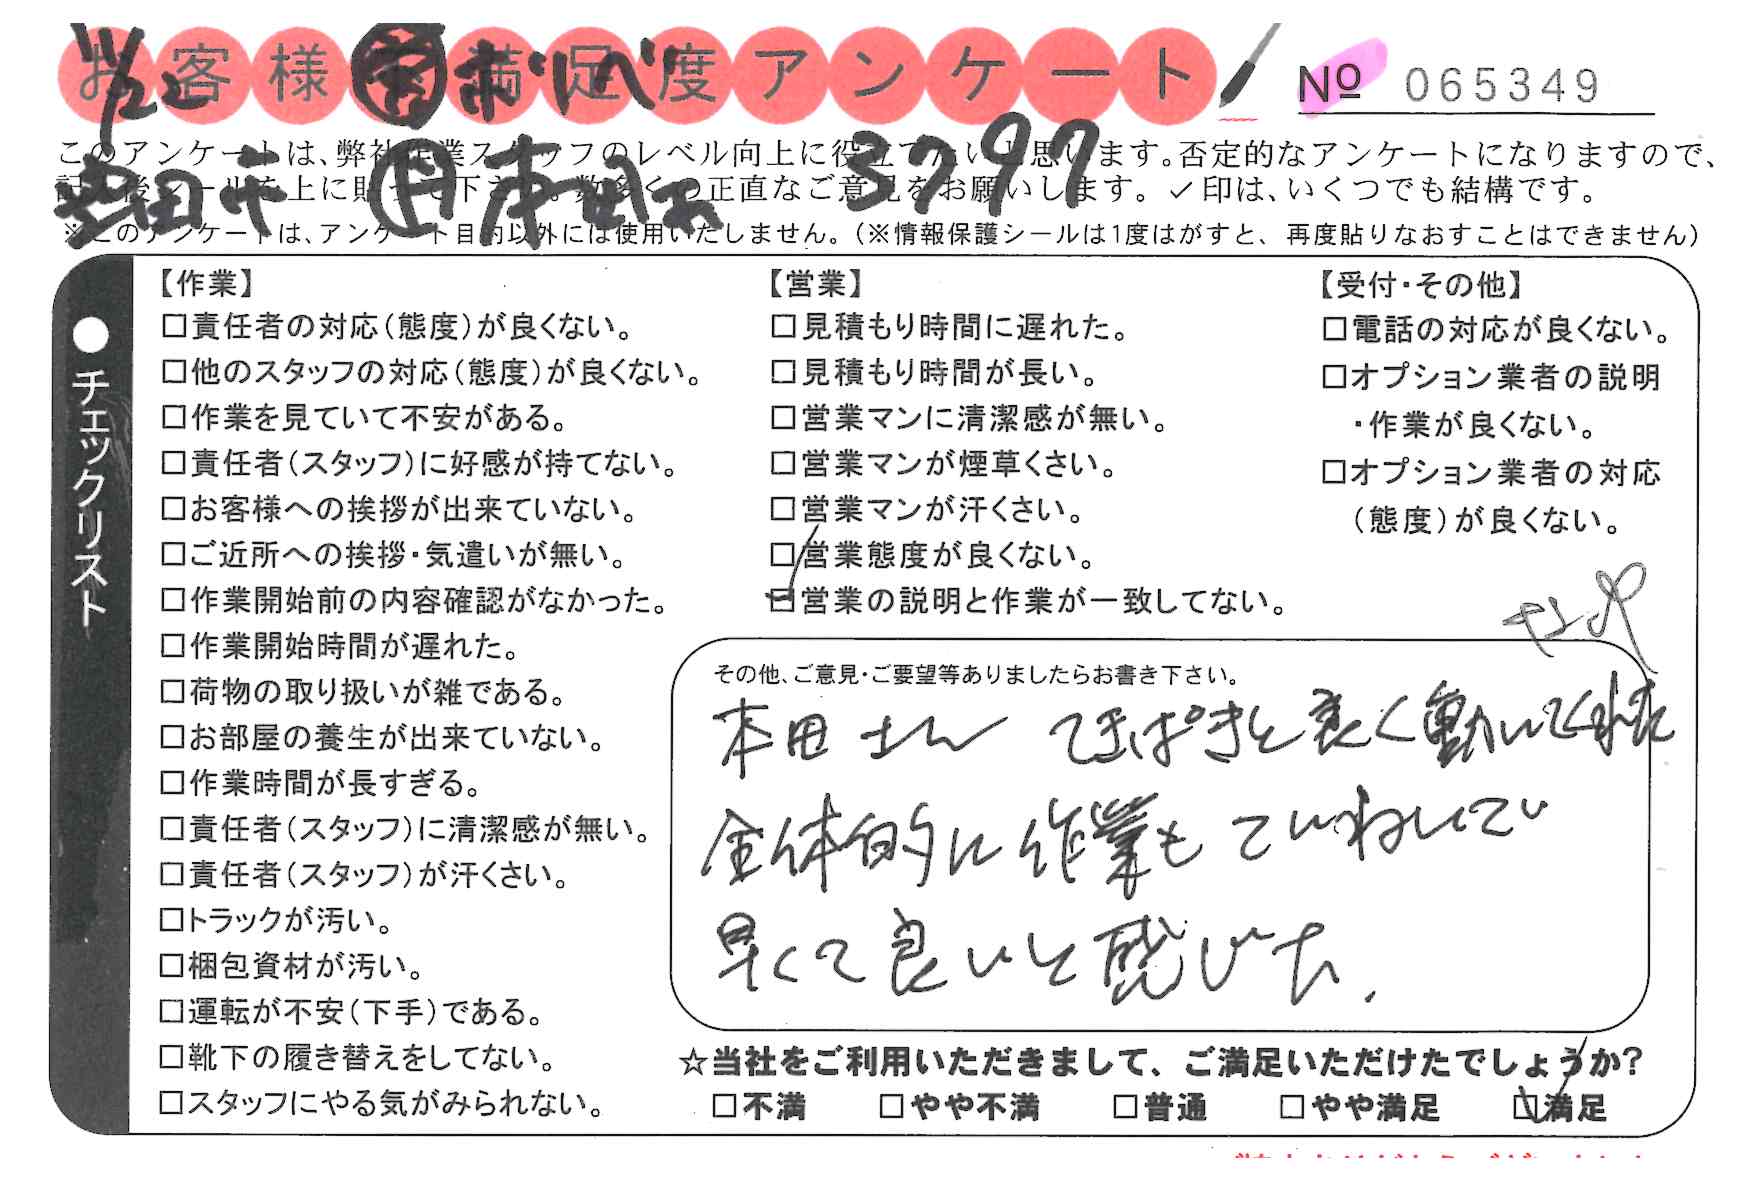 お客様満足度アンケート
№ 065349
11/22 ㊇ ボリベ
このアンケートは、弊社作業スタッフのレベル向上に役立てたいと思います。否定的なアンケートになりますので、
記入後シールを上に貼って下さい。数多くの正直なご意見をお願いします。✓印は、いくつでも結構です。
田市 本田 3797
※このアンケートは、アンケート目的以外には使用いたしません。（※情報保護シールは1度はがすと、再度貼りなおすことはできません）
●チェックリスト
【作業】
□責任者の対応（態度）が良くない。
□他のスタッフの対応（態度）が良くない。
□作業を見ていて不安がある。
□責任者（スタッフ）に好感が持てない。
□お客様への挨拶が出来ていない。
□ご近所への挨拶・気遣いが無い。
□作業開始前の内容確認がなかった。
□作業開始時間が遅れた。
□荷物の取り扱いが雑である。
□お部屋の養生が出来ていない。
□作業時間が長すぎる。
□責任者（スタッフ）に清潔感が無い。
□責任者（スタッフ）が汗くさい。
□トラックが汚い。
□梱包資材が汚い。
□運転が不安（下手）である。
□靴下の履き替えをしてない。
□スタッフにやる気がみられない。
【営業】
□見積もり時間に遅れた。
□見積もり時間が長い。
□営業マンに清潔感が無い。
□営業マンが煙草くさい。
□営業マンが汗くさい。
□営業態度が良くない。
☑営業の説明と作業が一致してない。
【受付・その他】
□電話の対応が良くない。
□オプション業者の説明
・作業が良くない。
□オプション業者の対応
（態度）が良くない。
その他、ご意見・ご要望等ありましたらお書き下さい。
本田さん てきぱきと良く動いてくれた
全体的に作業もていねいでい
早くて良いと感じた.
☆当社をご利用いただきまして、ご満足いただけたでしょうか?
□不満 □やや不満 □普通 □やや満足 ☑満足